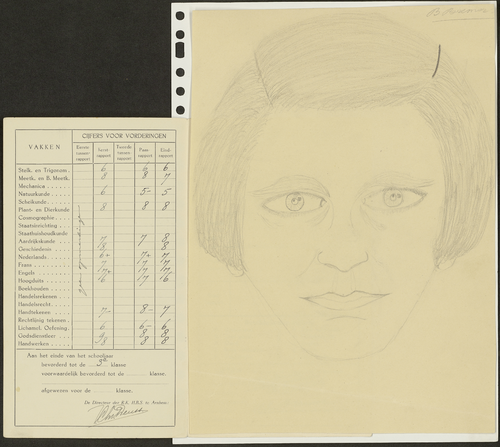 VAKKEN
CIJFERS VOOR VORDERINGEN
Eerste tussen-rapport Kerst-rapport Tweede tussen-rapport Paas-rapport Eind-rapport
Stelk. en Trigonom. 6 6 6
Meetk. en B. Meetk. 8 8 7
Mechanica
Natuurkunde 6 5- 5
Scheikunde
Plant- en Dierkunde 8 8 8
Cosmographie
Staatsinrichting
Staathuishoudkunde
Aardrijkskunde 7 7 8
Geschiedenis 8
Nederlands 6+ 7+ 7
Frans 7 7 7
Engels 7+ 7 7
Hoogduits 6 7 6
Boekhouden
Handelsrekenen
Handelsrecht
Handtekenen 7- 8- 7
Rechtlijnig tekenen
Lichamel. Oefening 6 6- 6
Godsdienstleer 9 8 8
Handwerken 8 8 8
Aan het einde van het schooljaar
bevorderd tot de 3e klasse
voorwaardelijk bevorderd tot de klasse.
afgewezen voor de klasse.
De Directeur der R.K. H.B.S. te